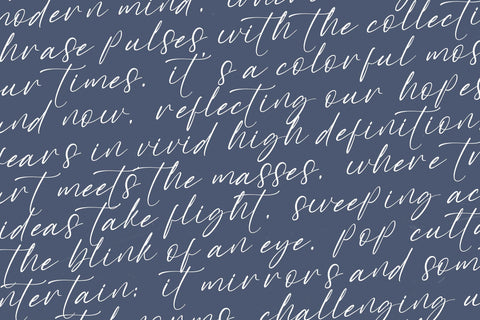 modern mind. where
phrase pulses, with the collecti
our times. it's a colorful mos
and now, reflecting our hopes
fears in vivid high definition.
art meets the masses, where tr
ideas take flight, sweeping ac
the blink of an eye. pop cultu
ntertain; it mirrors and som
t norms, challenging u